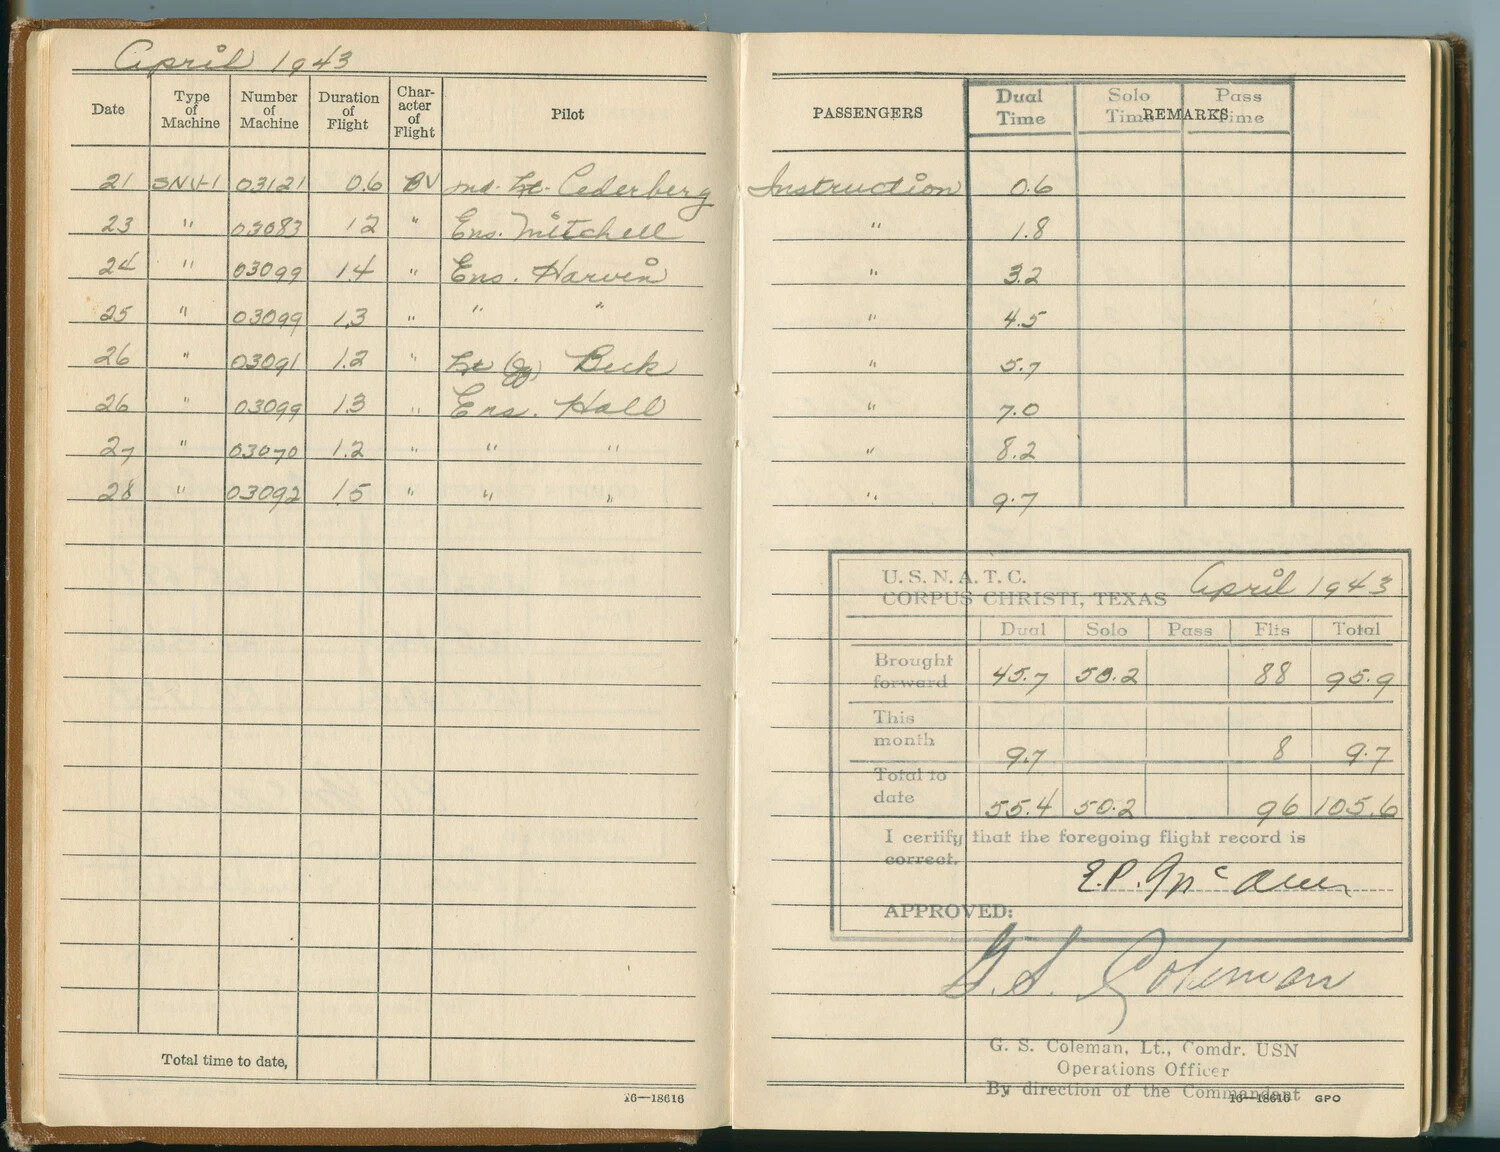 April 1943
Date Type of Machine Number of Machine Duration of Flight Char-acter of Flight Pilot PASSENGERS REMARKS Dual Time Solo Time Pass Time
21 SNV-1 03121 0.6 BV Lt. Cederberg Instruction 0.6
23 " 03083 1 2 " Ens. Mitchell " 1.8
24 " 03099 1.4 " Ens. Harvin " 3.2
25 " 03099 1.3 " " " " 4.5
26 " 03091 1.2 " Lt (jg) Beck " 5.7
26 " 03099 1.3 " Ens. Hall " 7.0
27 " 03070 1.2 " " " " 8.2
28 " 03092 1 5 " " " " 9.7
U. S. N. A. T. C. April 1943
CORPUS CHRISTI, TEXAS
Dual Solo Pass Flts Total
Brought forward 45.7 50.2 88 95.9
This month 9.7 8 9.7
Total to date 55.4 50.2 96 105.6
I certify that the foregoing flight record is
correct.
E.P. McAuer
APPROVED:
G. S. Coleman
G. S. Coleman, Lt., Comdr. USN
Operations Officer
By direction of the Commandant
Total time to date,
16—18616
16—18616 GPO